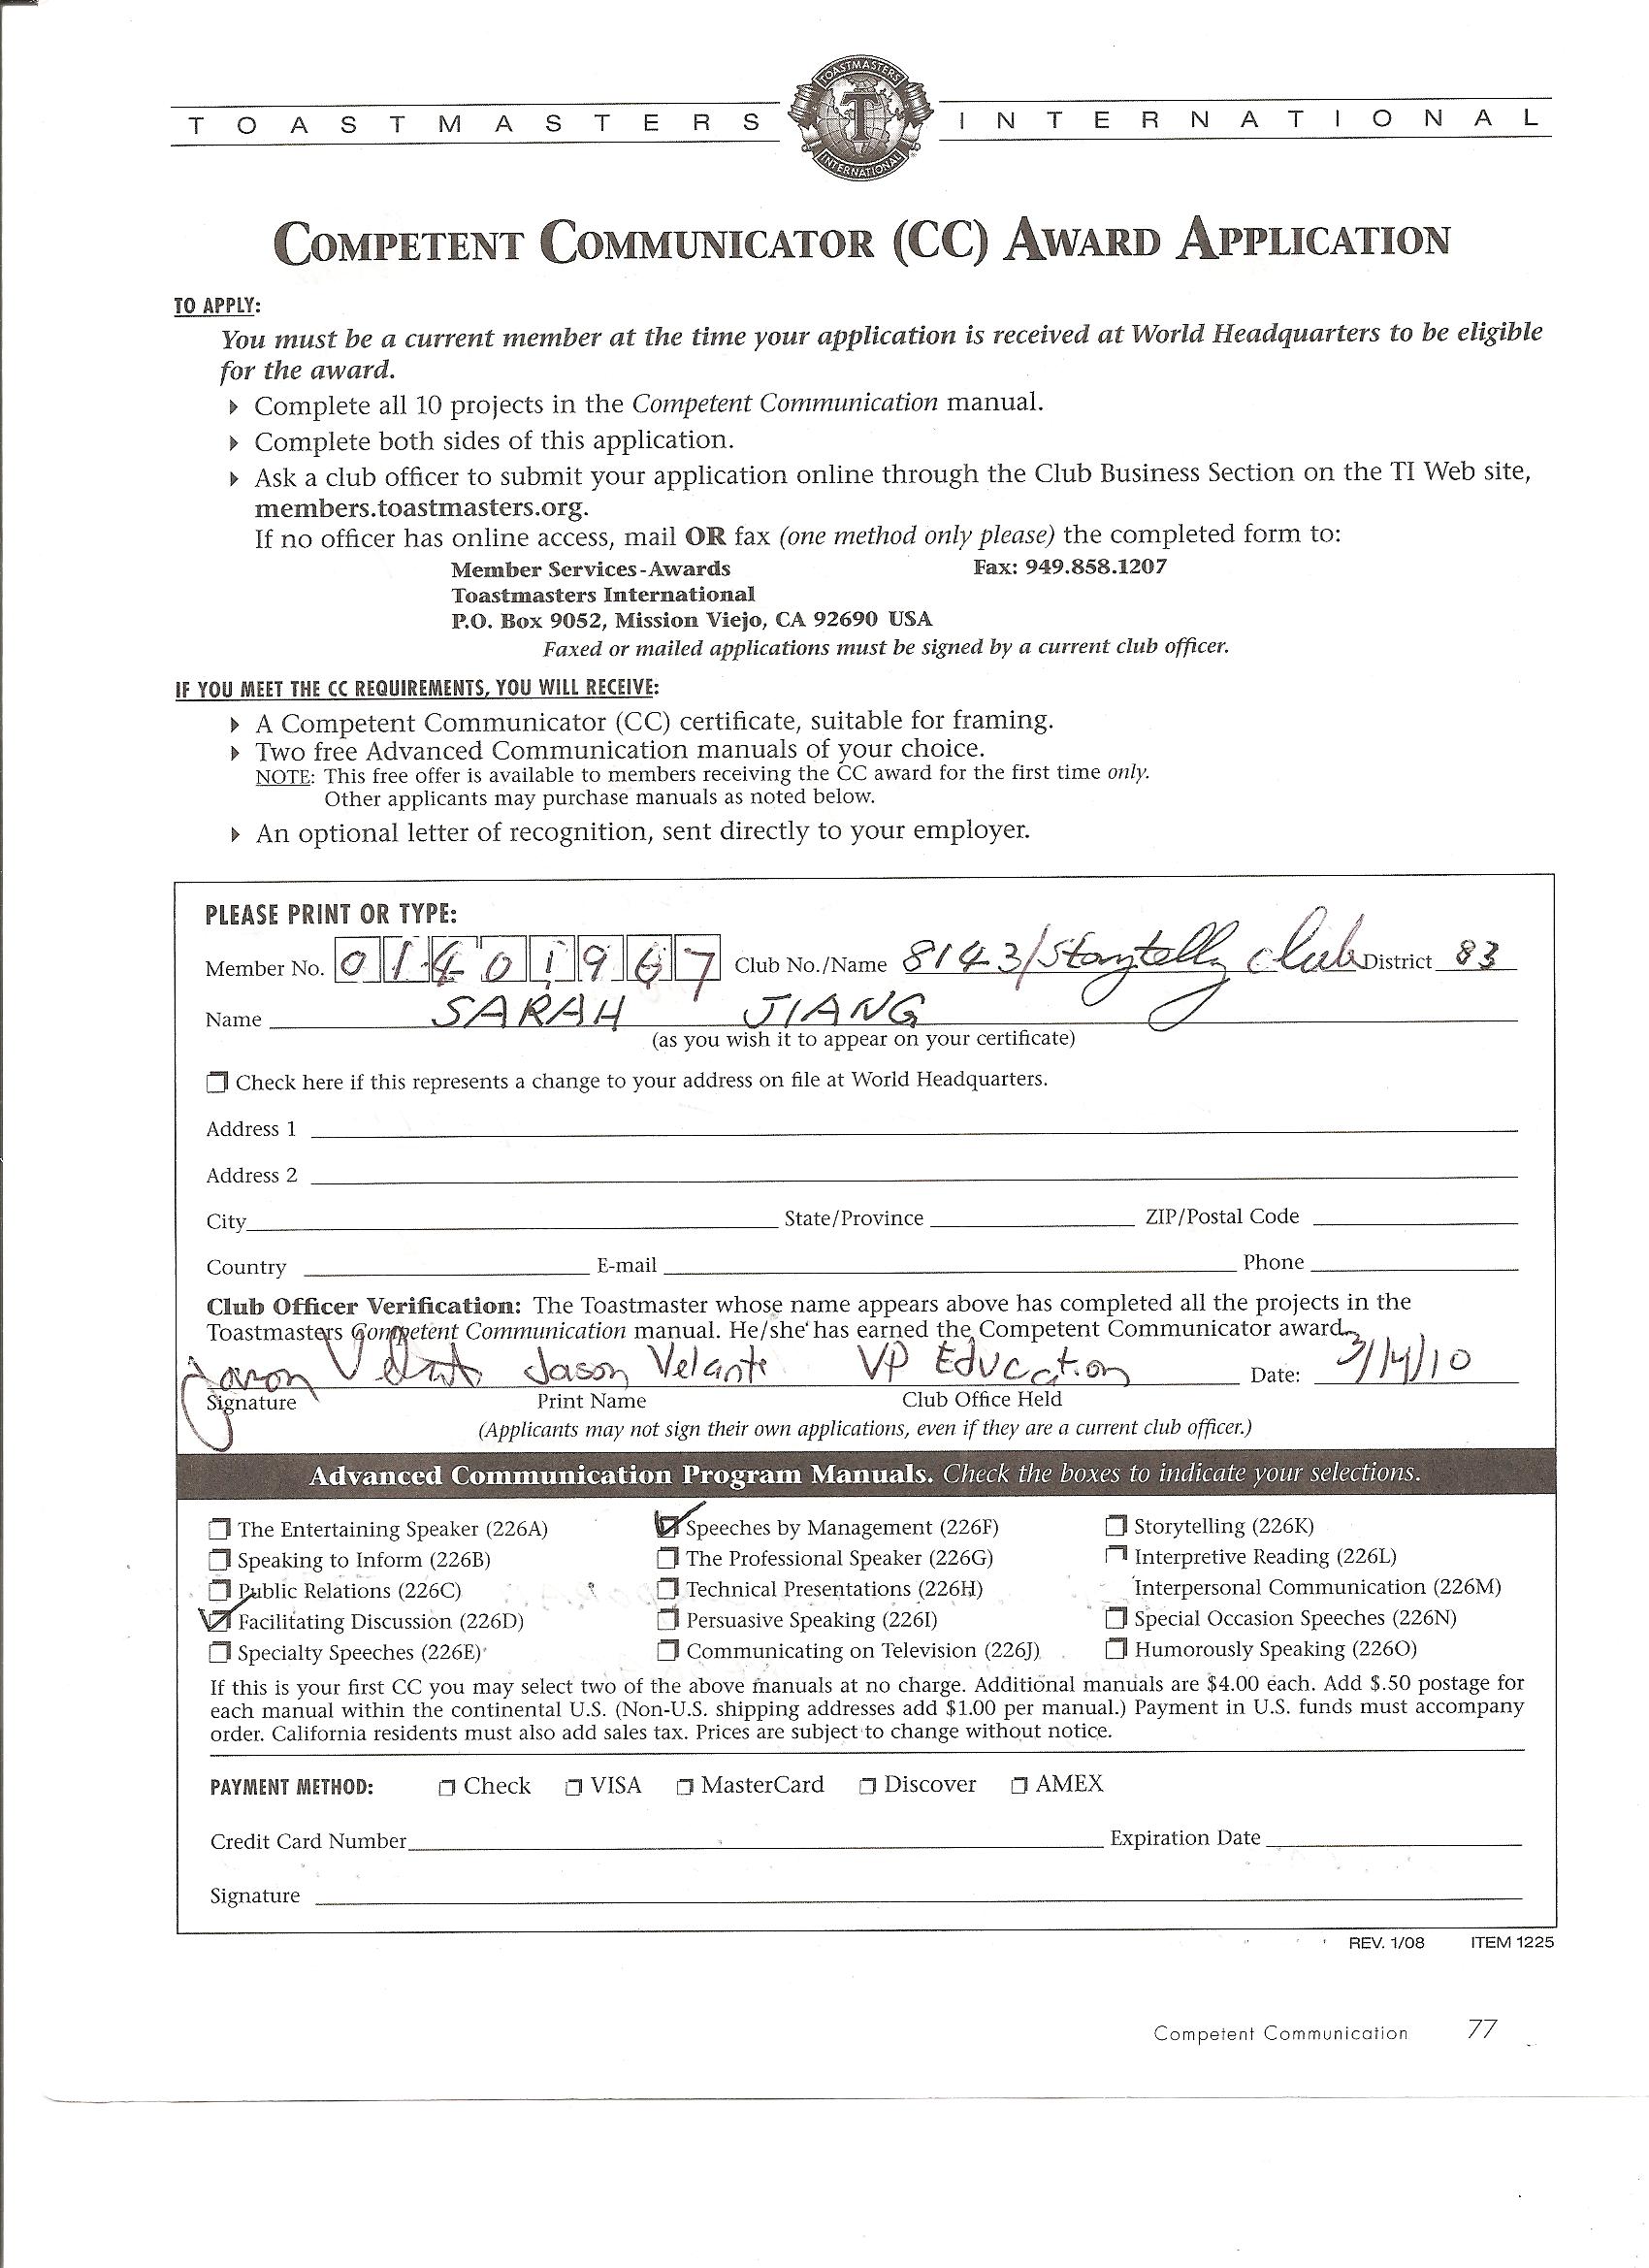 TOASTMASTERS INTERNATIONAL
TOASTMASTERS
T
INTERNATIONAL
COMPETENT COMMUNICATOR (CC) AWARD APPLICATION
TO APPLY:
You must be a current member at the time your application is received at World Headquarters to be eligible
for the award.
Complete all 10 projects in the Competent Communication manual.
Complete both sides of this application.
Ask a club officer to submit your application online through the Club Business Section on the TI Web site,
members.toastmasters.org.
If no officer has online access, mail OR fax (one method only please) the completed form to:
Member Services-Awards Fax: 949.858.1207
Toastmasters International
P.O. Box 9052, Mission Viejo, CA 92690 USA
Faxed or mailed applications must be signed by a current club officer.
IF YOU MEET THE CC REQUIREMENTS, YOU WILL RECEIVE:
A Competent Communicator (CC) certificate, suitable for framing.
Two free Advanced Communication manuals of your choice.
NOTE: This free offer is available to members receiving the CC award for the first time only.
Other applicants may purchase manuals as noted below.
An optional letter of recognition, sent directly to your employer.
PLEASE PRINT OR TYPE:
Member No. 01401967 Club No./Name 8143/Storytelly club District 83
Name SARAH JIANG
(as you wish it to appear on your certificate)
Check here if this represents a change to your address on file at World Headquarters.
Address 1
Address 2
City State/Province ZIP/Postal Code
Country E-mail Phone
Club Officer Verification: The Toastmaster whose name appears above has completed all the projects in the
Toastmasters Competent Communication manual. He/she has earned the Competent Communicator award.
Jason Velante Jason Velante VP Education Date: 3/14/10
Signature Print Name Club Office Held
(Applicants may not sign their own applications, even if they are a current club officer.)
Advanced Communication Program Manuals. Check the boxes to indicate your selections.
The Entertaining Speaker (226A) Speeches by Management (226F) Storytelling (226K)
Speaking to Inform (226B) The Professional Speaker (226G) Interpretive Reading (226L)
Public Relations (226C) Technical Presentations (226H) Interpersonal Communication (226M)
Facilitating Discussion (226D) Persuasive Speaking (226I) Special Occasion Speeches (226N)
Specialty Speeches (226E) Communicating on Television (226J) Humorously Speaking (226O)
If this is your first CC you may select two of the above manuals at no charge. Additional manuals are $4.00 each. Add $.50 postage for
each manual within the continental U.S. (Non-U.S. shipping addresses add $1.00 per manual.) Payment in U.S. funds must accompany
order. California residents must also add sales tax. Prices are subject to change without notice.
PAYMENT METHOD: Check VISA MasterCard Discover AMEX
Credit Card Number Expiration Date
Signature
REV. 1/08 ITEM 1225
Competent Communication 77